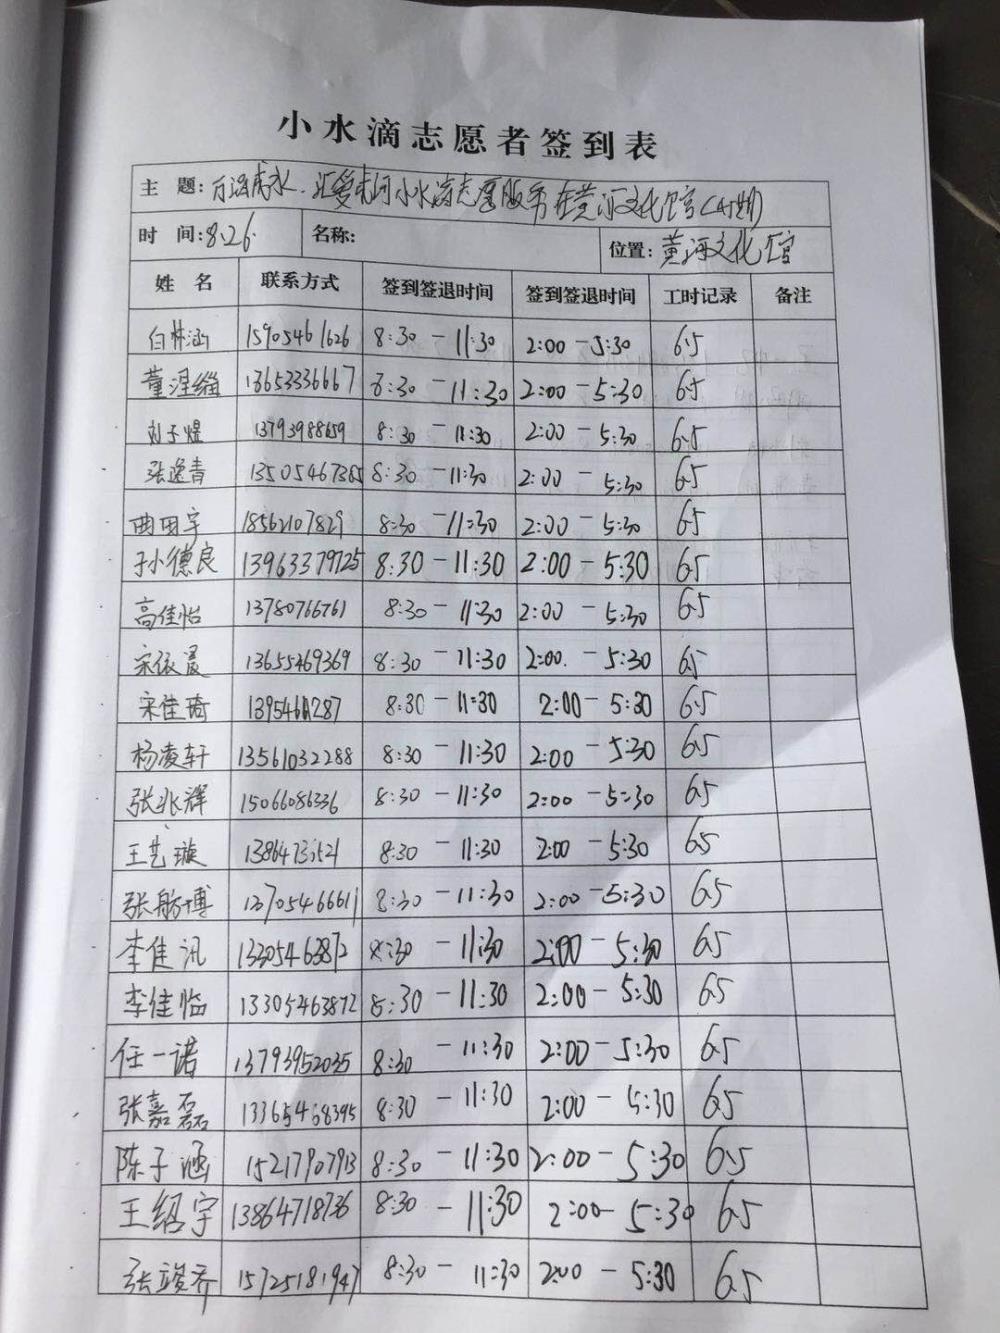 小水滴志愿者签到表
主 题: 小水滴志愿服务在黄河文化馆
时 间:8.26. 名称: 位置: 黄河文化馆
姓 名 联系方式 签到签退时间 签到签退时间 工时记录 备注
白林涵 15905461626 8:30 - 11:30 2:00 - 5:30 6.5
董涅缁 13653336667 8:30 - 11:30 2:00 - 5:30 6.5
刘子煜 13793988659 8:30 - 11:30 2:00 - 5:30 6.5
张逸青 13505467365 8:30 - 11:30 2:00 - 5:30 6.5
曲田宇 18562107829 8:30 - 11:30 2:00 - 5:30 6.5
孙德良 13963379725 8:30 - 11:30 2:00 - 5:30 6.5
高佳怡 13780766761 8:30 - 11:30 2:00 - 5:30 6.5
宋依晨 13655469369 8:30 - 11:30 2:00. - 5:30 6.5
宋佳琦 8:30 - 11:30 2:00 - 5:30 6.5
杨凌轩 13561032288 8:30 - 11:30 2:00 - 5:30 6.5
张兆辉 15066086336 8:30 - 11:30 2:00 - 5:30 6.5
王艺璇 8:30 - 11:30 2:00 - 5:30 6.5
张舫博 13705466611 8:30 - 11:30 2:00 - 5:30 6.5
李佳讯 13305463872 8:30 - 11:30 2:00 - 5:30 6.5
李佳临 13305463872 8:30 - 11:30 2:00 - 5:30 6.5
任一诺 13793952035 8:30 - 11:30 2:00 - 5:30 6.5
张嘉磊 13365468395 8:30 - 11:30 2:00 - 5:30 6.5
陈子涵 15217907913 8:30 - 11:30 2:00 - 5:30 6.5
王绍宇 13864718736 8:30 - 11:30 2:00 - 5:30 6.5
张竣乔 15725181947 8:30 - 11:30 2:00 - 5:30 6.5